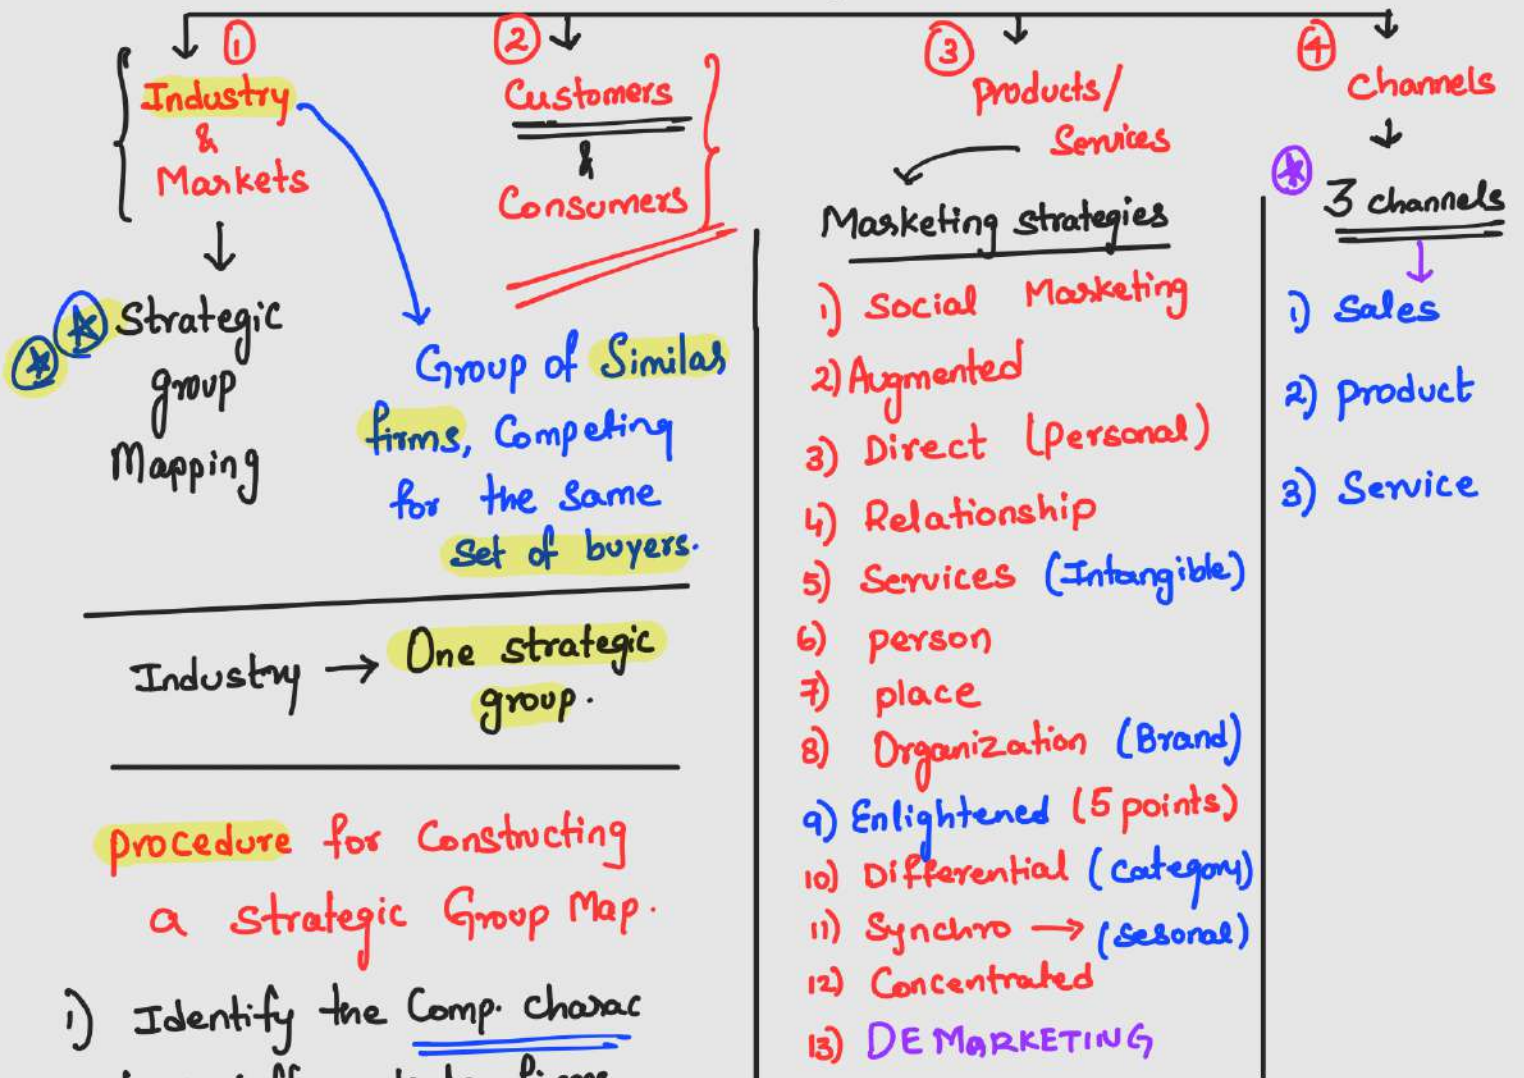 ①
Industry
&
Markets
Strategic
group
Mapping
②
Customers
&
Consumers
Group of Similar
firms, Competing
for the same
set of buyers.
Industry → One strategic
group.
procedure for Constructing
a strategic Group Map.
1) Identify the Comp. charac
③
products/
Services
Marketing strategies
1) Social Marketing
2) Augmented
3) Direct (personal)
4) Relationship
5) Services (Intangible)
6) person
7) place
8) Organization (Brand)
9) Enlightened (5 points)
10) Differential (category)
11) Synchro → (sesonal)
12) Concentrated
13) DEMARKETING
④
Channels
3 channels
1) Sales
2) product
3) Service